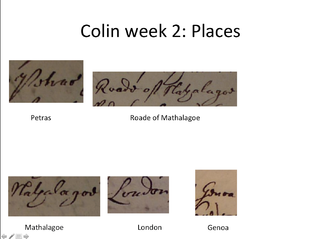 Colin week 2: Places
Petras
Roade of Mathalagoe
Petras
Roade of Mathalagoe
Mathalagoe
London
Genoa
Mathalagoe
London
Genoa